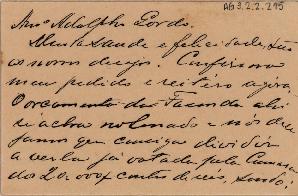 AG 3.2.2.295
Amo Adolpho Gordo.
Muita saude e felicidade, são
os nossos desejos. Confirmo o
meu pedido e reitéro agora,
O orcamento da Fazenda ahi
já acha no Senado e nós dese
jamos que consiga dividir
a verba já votada pela Camara
dos 20.000$ contos de reis, sendo: